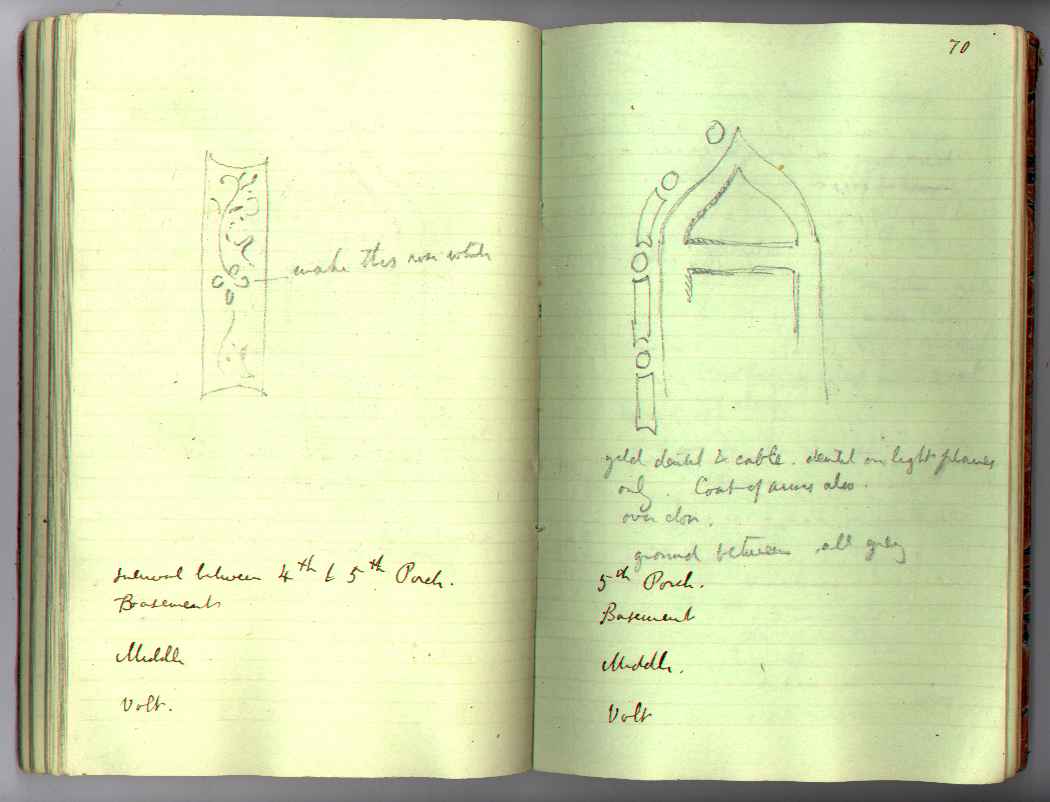 make this rose white
Interval between 4th & 5th Porch.
Basements
Middle
Volt.
70
gold dentil & cable. dentil on light planes
only. Coat of arms also.
over door.
ground between all grey
5th Porch.
Basement
Middle.
Volt